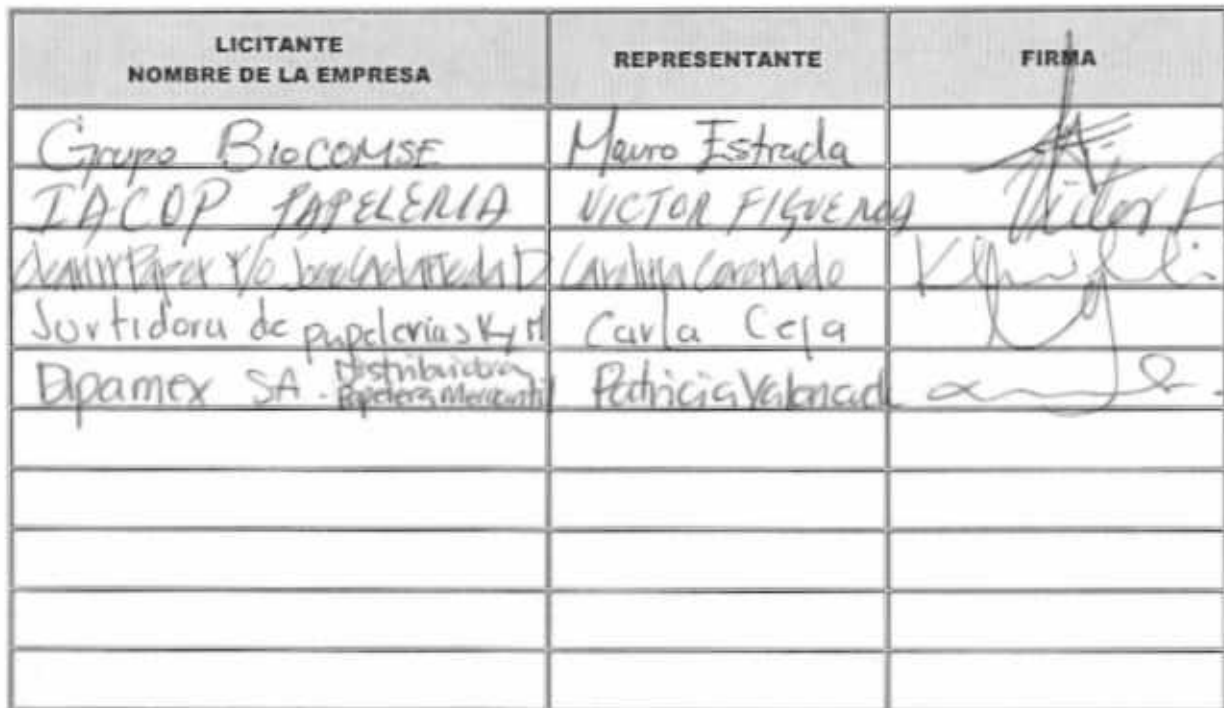 LICITANTE
NOMBRE DE LA EMPRESA
REPRESENTANTE
FIRMA
Grupo BIOCOMSE
Mauro Estrada
IACOP PAPELERIA
VICTOR FIGUEROA
Victor F
Paper Y/o
Carolina Coronado
Surtidora de papelerias K y M
Carla Ceja
Dipamex SA. Distribuidora
Papelera Mercantil
Patricia